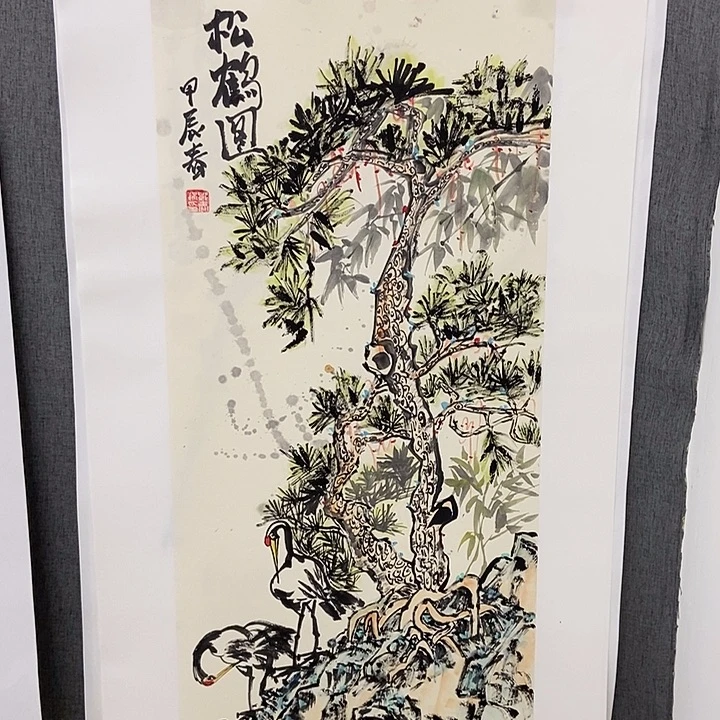 松鹤图
甲辰春